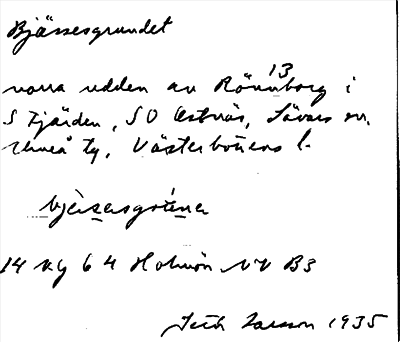 Bjässesgrundet
norra udden av Rönnborg i
13
S Fjärden, SO Ostnäs, Sävars sn.
Umeå tg, Västerbottens l.
14 NG 64 Holmön NV B3
Larsson 1935